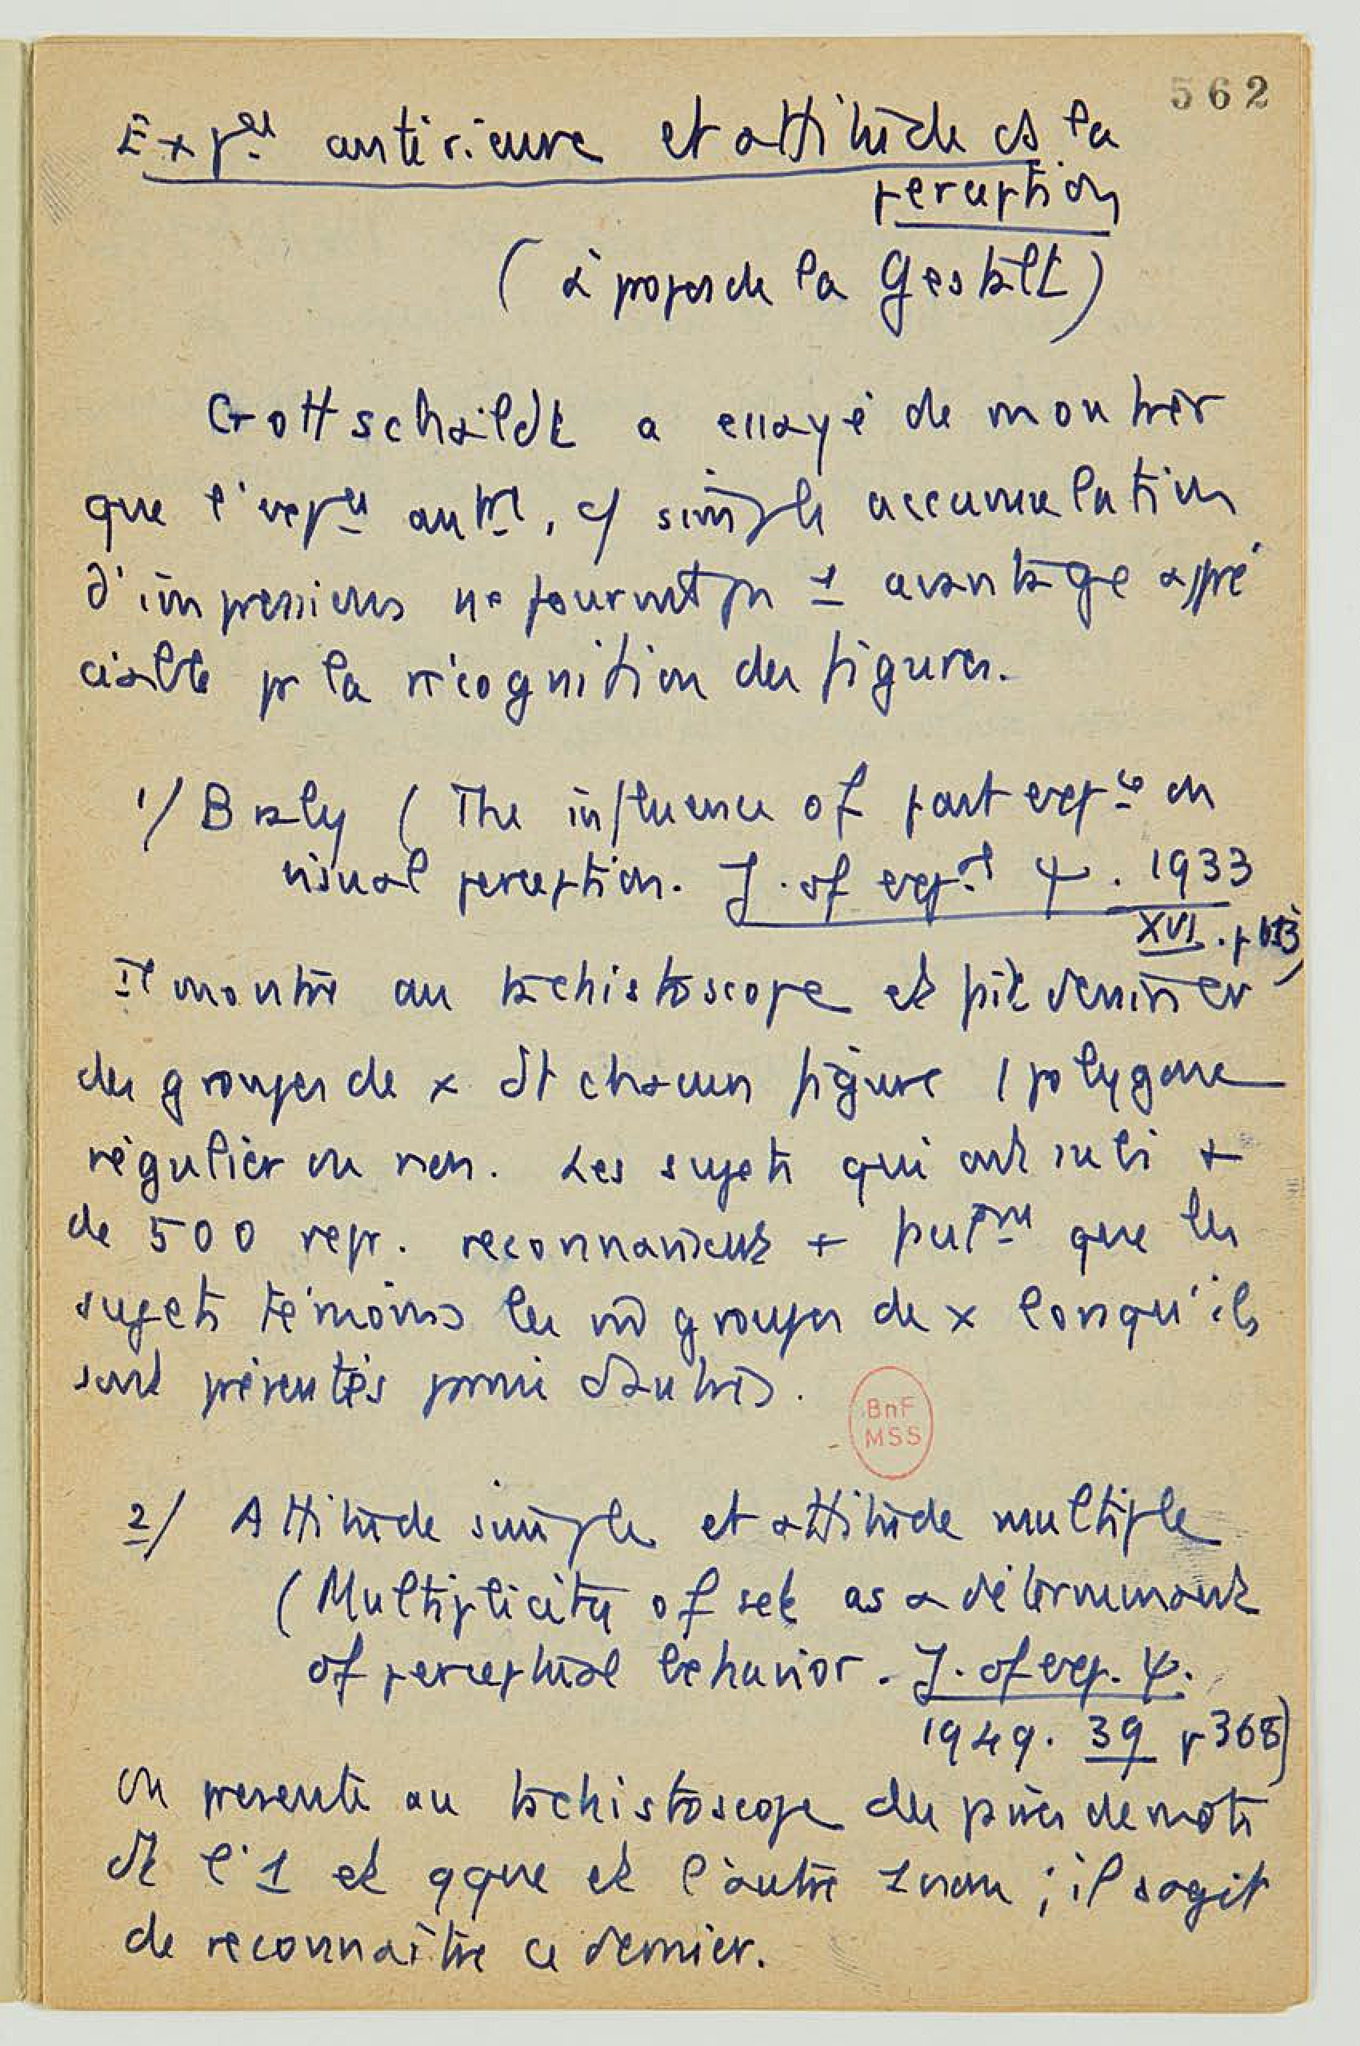 562
Expce antérieure et attitude ds la
perception
(à propos de la Gestalt)
Gottschaldt a essayé de montrer
que l'expce antre, c/ simple accumulation
d'impressions ne fournit pas 1 avantage appré
ciable pr la récognition des figures.
1/ Braly (The influence of past expce on
visual perception. J. of expal ψ. 1933
XVI. p 613)
Il montre au tachistoscope et fait dessiner
des groupes de x dt chacun figure 1 polygone
régulier ou non. Les sujets qui ont subi +
de 500 rep. reconnaissent + que les
sujets témoins les m̂ groupes de x lorsqu'ils
sont présentés parmi d'autres.
BnF
MSS
2/ Attitude simple et attitude multiple
(Multiplicity of set as a déterminant
of perceptual behavior. J. of exp. ψ.
1949. 39 p 368)
On présente au tachistoscope des paires de mots
dt l'1 est qque et l'autre 1 nom ; il s'agit
de reconnaître ce dernier.